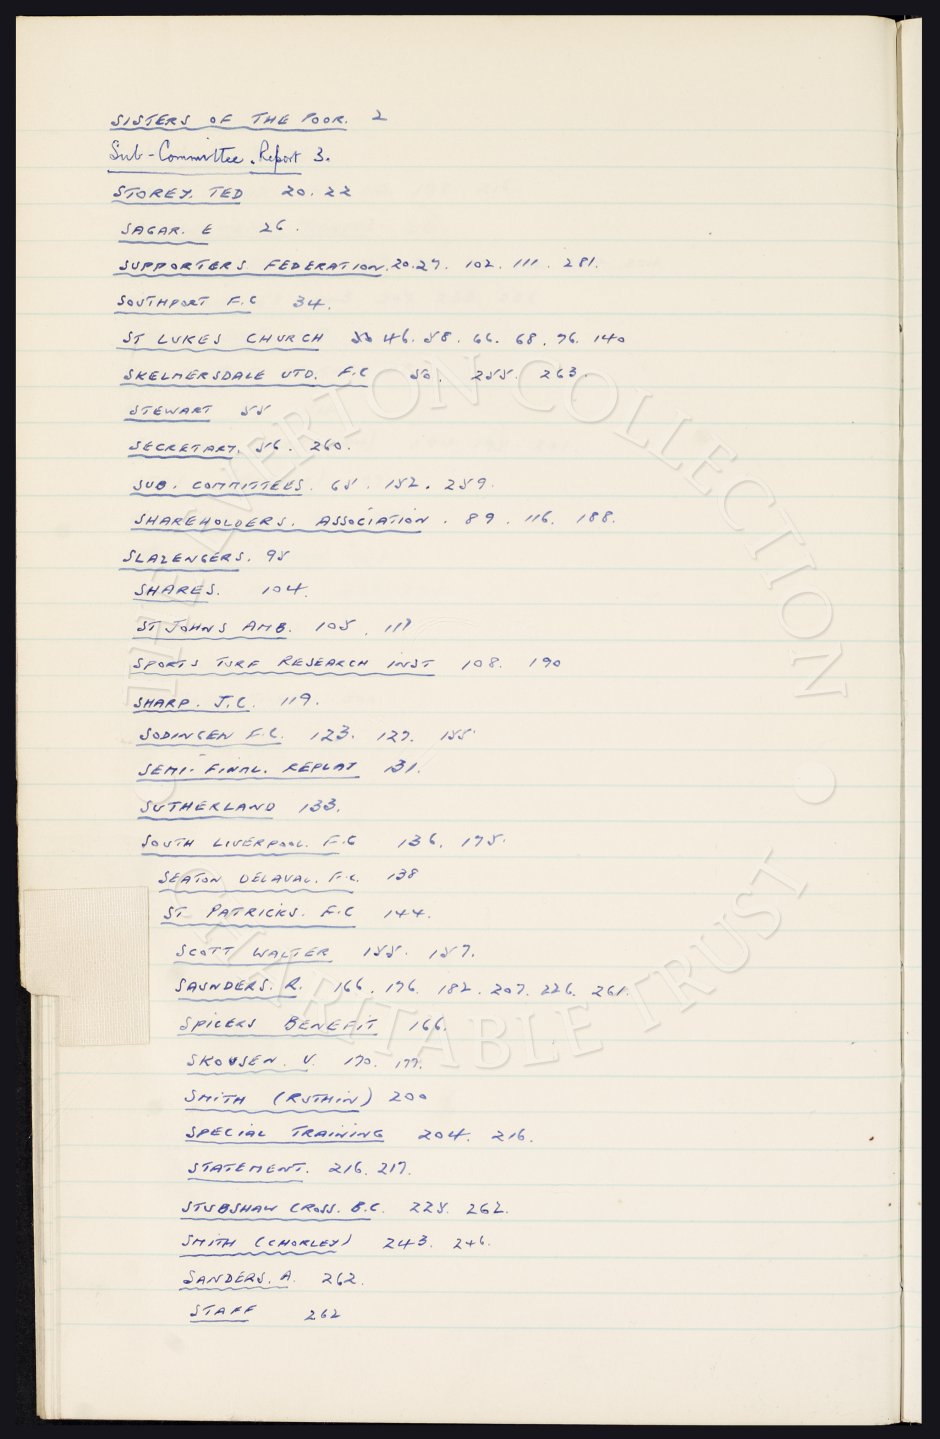 SISTERS OF THE POOR. 2
Sub-Committee. Report 3.
STOREY. TED 20. 22
SAGAR. E 26.
SUPPORTERS FEDERATION. 20.27. 102. 111. 281.
SOUTHPORT F.C 34.
ST LUKES CHURCH 46. 58. 66. 68. 76. 140
SKELMERSDALE UTD. F.C 50. 255. 263.
STEWART 55
SECRETARY. 56. 260.
SUB. COMMITTEES. 65. 152. 259.
SHAREHOLDERS. ASSOCIATION. 89. 116. 188.
SLAZENGERS. 95
SHARES. 104.
ST JOHNS AMB. 105.
SPORTS TURF RESEARCH INST 108. 190
SHARP. J.C. 119.
SODINGEN F.C. 123. 127. 155.
SEMI-FINAL. REPLAY 131.
SUTHERLAND 133.
SOUTH LIVERPOOL. F.C 136. 175.
SEATON DELAVAL. F.C. 138
ST PATRICKS. F.C 144.
SCOTT WALTER 155. 157.
SAUNDERS. R. 166. 176. 182. 207. 226. 261.
SPICERS BENEFIT 166.
SKOUSEN. V. 170. 177.
SMITH (RUTHIN) 200
SPECIAL TRAINING 204. 216.
STATEMENT. 216. 217.
STUBSHAW CROSS. B.C. 225. 262.
SMITH (CHORLEY) 243. 246.
SANDERS. A. 262.
STAFF 262
THE EVERTON COLLECTION
CHARITABLE TRUST